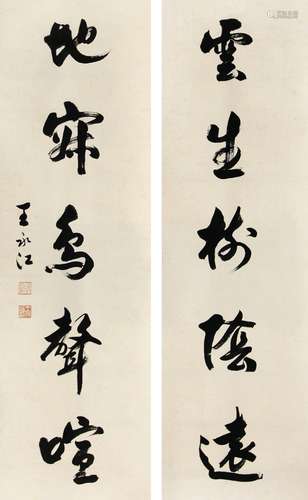 雲生樹陰遠
地寂鳥聲喧
王永江